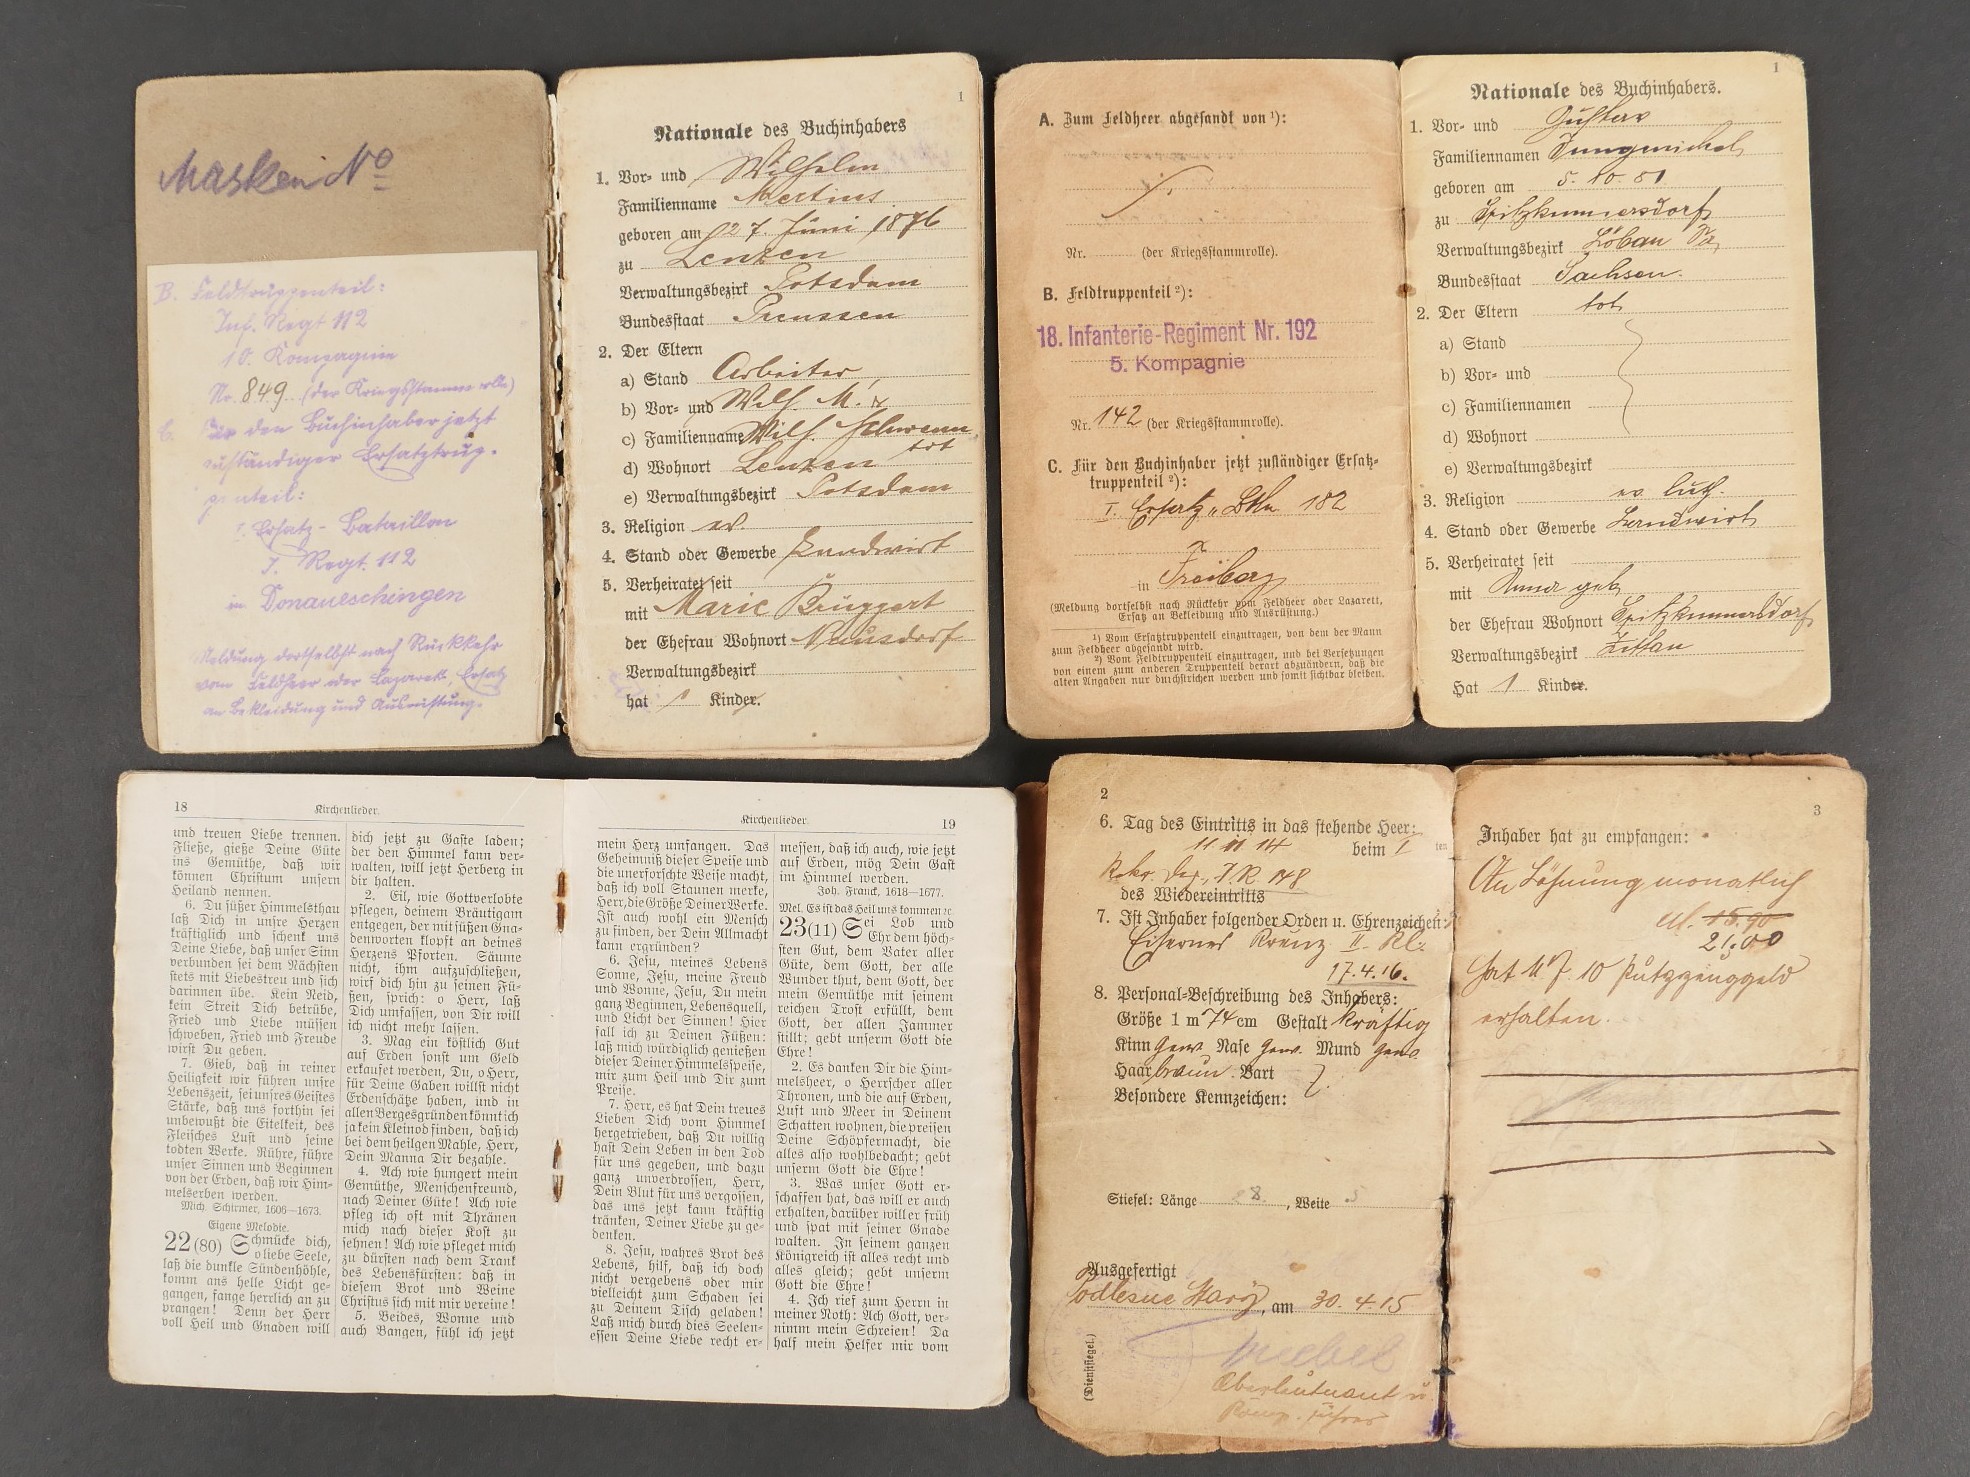 Masken No
B. Feldtruppenteil:
Inf. Regt 112
10. Kompagnie
Nr. 849 (der Kriegsstammrolle)
C. Für den Buchinhaber jetzt
zuständiger Ersatztrup-
penteil:
Ersatz-Bataillon
J. Regt. 112
in Donaueschingen
Meldung dortselbst nach Rückkehr
vom Feldheer oder Lazarett, Ersatz
an Bekleidung und Ausrüstung.
1
Nationale des Buchinhabers
1. Vor- und Wilhelm
Familienname Mertins
geboren am 27. Juni 1876
zu Lenzen
Verwaltungsbezirk Potsdam
Bundesstaat Preussen
2. Der Eltern
a) Stand Arbeiter,
b) Vor- und Wilh. M.
c) Familienname Wilh.
tot
d) Wohnort Lenzen
e) Verwaltungsbezirk Potsdam
3. Religion ev.
4. Stand oder Gewerbe Landwirt
5. Verheiratet seit
mit Marie Brüggert
der Ehefrau Wohnort
Verwaltungsbezirk
hat 1 Kinder.
A. Zum Feldheer abgesandt von ¹):
Nr. (der Kriegsstammrolle).
B. Feldtruppenteil ²):
18. Infanterie-Regiment Nr. 192
5. Kompagnie
Nr. 142 (der Kriegsstammrolle).
C. Für den Buchinhaber jetzt zuständiger Ersatz-
truppenteil ²):
I. Ersatz-Btln 182
in Freiberg
(Meldung dortselbst nach Rückkehr vom Feldheer oder Lazarett,
Ersatz an Bekleidung und Ausrüstung.)
¹) Vom Ersatztruppenteil einzutragen, von dem der Mann
zum Feldheer abgesandt wird.
²) Vom Feldtruppenteil einzutragen, und bei Versetzungen
von einem zum anderen Truppenteil derart abzuändern, daß die
alten Angaben nur durchstrichen werden und somit sichtbar bleiben.
1
Nationale des Buchinhabers.
1. Vor- und Gustav
Familiennamen Jungmichel
geboren am 5. 10. 81
zu Spitzkunnersdorf
Verwaltungsbezirk Löbau Sa.
Bundesstaat Sachsen.
2. Der Eltern tot
a) Stand
b) Vor- und
c) Familiennamen
d) Wohnort
e) Verwaltungsbezirk
3. Religion ev. luth.
4. Stand oder Gewerbe Landwirt
5. Verheiratet seit
mit Anna geb.
der Ehefrau Wohnort Spitzkunnersdorf
Verwaltungsbezirk Zittau
Hat 1 Kinder.
18
Kirchenlieder.
und treuen Liebe trennen.
Fließe, gieße Deine Güte
ins Gemüthe, daß wir
können Christum unsern
Heiland nennen.
6. Du süßer Himmelsthau
laß Dich in unsre Herzen
kräftiglich und schenk uns
Deine Liebe, daß unser Sinn
verbunden sei dem Nächsten
stets mit Liebestreu und sich
darinnen übe. Kein Neid,
kein Streit Dich betrübe,
Fried und Liebe müssen
schweben, Fried und Freude
wirst Du geben.
7. Gieb, daß in reiner
Heiligkeit wir führen unsre
Lebenszeit, sei unsres Geistes
Stärke, daß uns forthin sei
unbewußt die Eitelkeit, des
Fleisches Lust und seine
todten Werke. Rühre, führe
unser Sinnen und Beginnen
von der Erden, daß wir Him-
melserben werden.
Mich. Schirmer, 1606—1673.
Eigene Melodie.
22 (80) Schmücke dich,
o liebe Seele,
laß die dunkle Sündenhöhle,
komm ans helle Licht ge-
gangen, fange herrlich an zu
prangen! Denn der Herr
voll Heil und Gnaden will
dich jetzt zu Gaste laden;
der den Himmel kann ver-
walten, will jetzt Herberg in
dir halten.
2. Eil, wie Gottverlobte
pflegen, deinem Bräutigam
entgegen, der mit süßen Gna-
denworten klopft an deines
Herzens Pforten. Säume
nicht, ihm aufzuschließen,
wirf dich hin zu seinen Fü-
ßen, sprich: o Herr, laß
Dich umfassen, von Dir will
ich nicht mehr lassen.
3. Mag ein köstlich Gut
auf Erden sonst um Geld
erkaufet werden, Du, o Herr,
für Deine Gaben willst nicht
Erdenschätze haben, und in
allen Bergesgründen könnt ich
ja kein Kleinod finden, daß ich
bei dem heilgen Mahle, Herr,
Dein Manna Dir bezahle.
4. Ach wie hungert mein
Gemüthe, Menschenfreund,
nach Deiner Güte! Ach wie
pfleg ich oft mit Thränen
mich nach dieser Kost zu
sehnen! Ach wie pfleget mich
zu dürsten nach dem Trank
des Lebensfürsten: daß in
diesem Brot und Weine
Christus sich mit mir vereine!
5. Beides, Wonne und
auch Bangen, fühl ich jetzt
Kirchenlieder.
19
mein Herz umfangen. Das
Geheimniß dieser Speise und
die unerforschte Weise macht,
daß ich voll Staunen merke,
Herr, die Größe Deiner Werke.
Ist auch wohl ein Mensch
zu finden, der Dein Allmacht
kann ergründen?
6. Jesu, meines Lebens
Sonne, Jesu, meine Freud
und Wonne, Jesu, Du mein
ganz Beginnen, Lebensquell,
und Licht der Sinnen! Hier
fall ich zu Deinen Füßen:
laß mich würdiglich genießen
dieser Deiner Himmelsspeise,
mir zum Heil und Dir zum
Preise.
7. Herr, es hat Dein treues
Lieben Dich vom Himmel
hergetrieben, daß Du willig
hast Dein Leben in den Tod
für uns gegeben, und dazu
ganz unverdrossen, Herr,
Dein Blut für uns vergossen,
das uns jetzt kann kräftig
tränken, Deiner Liebe zu ge-
denken.
8. Jesu, wahres Brot des
Lebens, hilf, daß ich doch
nicht vergebens oder mir
vielleicht zum Schaden sei
zu Deinem Tisch geladen!
Laß mich durch dies Seelen-
essen Deine Liebe recht er-
messen, daß ich auch, wie jetzt
auf Erden, mög Dein Gast
im Himmel werden.
Joh. Franck, 1618—1677.
Mel. Es ist das Heil uns kommen ꝛc.
23 (11) Sei Lob und
Ehr dem höch-
sten Gut, dem Vater aller
Güte, dem Gott, der alle
Wunder thut, dem Gott, der
mein Gemüthe mit seinem
reichen Trost erfüllt, dem
Gott, der allen Jammer
stillt: gebt unserm Gott die
Ehre!
2. Es danken Dir die Him-
melsheer, o Herrscher aller
Thronen, und die auf Erden,
Luft und Meer in Deinem
Schatten wohnen, die preisen
Deine Schöpfermacht, die
alles also wohlbedacht; gebt
unserm Gott die Ehre!
3. Was unser Gott er-
schaffen hat, das will er auch
erhalten, darüber will er früh
und spat mit seiner Gnade
walten. In seinem ganzen
Königreich ist alles recht und
alles gleich; gebt unserm
Gott die Ehre!
4. Ich rief zum Herrn in
meiner Noth: Ach Gott, ver-
nimm mein Schreien! Da
half mein Helfer mir vom
2
6. Tag des Eintritts in das stehende Heer:
11 11 14 beim I ten
Rekr. Dep. J. R. 148
des Wiedereintritts
7. Ist Inhaber folgender Orden u. Ehrenzeichen:
Eisernes Kreuz II. Kl.
17.4.16.
8. Personal-Beschreibung des Inhabers:
Größe 1 m 74 cm Gestalt kräftig
Kinn gew. Nase gew. Mund gew.
Haar braun. Bart
Besondere Kennzeichen:
Stiefel: Länge 28, Weite 5
Ausgefertigt
Podlesne Stary, am 30. 4. 15
Oberleutnant u.
Komp. führer
(Dienstsiegel.)
3
Inhaber hat zu empfangen:
An Löhnung monatlich
M. 15.90
21,00
hat M 10 Putzzeuggeld
erhalten.